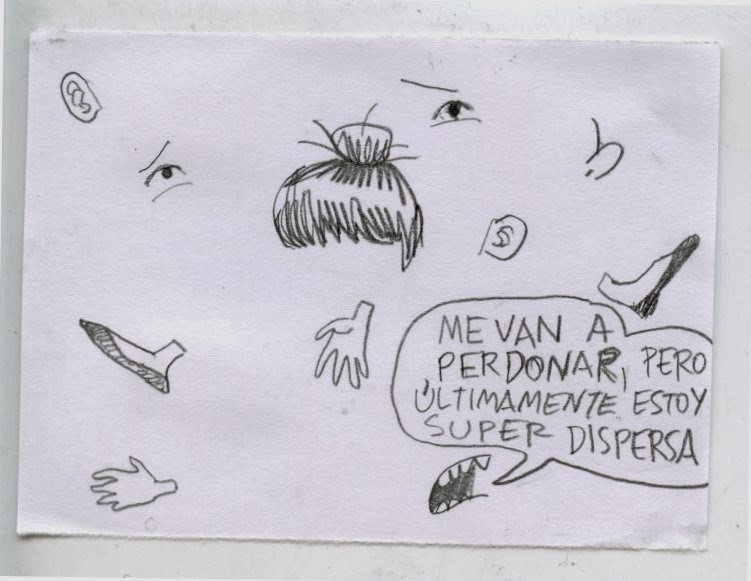 ME VAN A
PERDONAR, PERO
ÚLTIMAMENTE ESTOY
SUPER DISPERSA